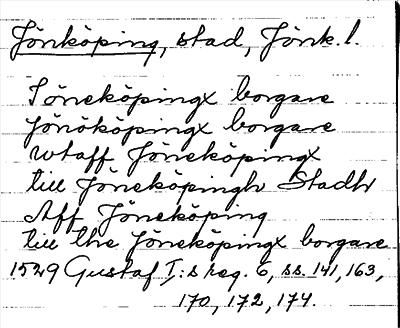 Jönköping, stad, Jönk. l.
Iöneköpingx borgare
Jönököpingx borgare
wtaff Jöneköpingx
till Jöneköpingh Stadh
Aff Jöneköping
till the Jöneköpingx borgare
1529 Gustaf I:s reg. 6, ss. 141, 163,
170, 172, 174.